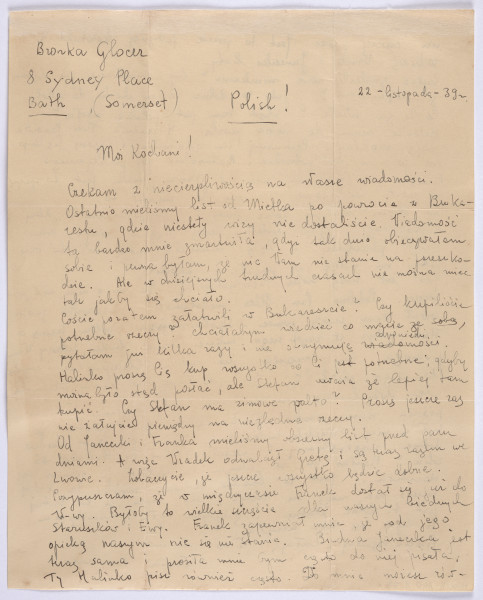 Bronka Glocer
8 Sydney Place
Bath (Somerset)
Polish!
22-listopada-39r.
Moi Kochani!
Czekam z niecierpliwością na Wasze wiadomości.
Ostatnio mieliśmy list od Mietka po powrocie z Buka-
resztu, gdzie niestety wizy nie dostaliście. Wiadomość
ta bardzo mnie zmartwiła, gdyż tak dużo obiecywałam
sobie i pewna byłam, że nic Wam nie stanie na przeszko-
dzie. Ale w dzisiejszych trudnych czasach nie można mieć
tak jakby się chciało.
Coście pozatem załatwili w Bukareszcie? Czy kupiliście
potrzebne rzeczy? Chciałabym wiedzieć co macie ze sobą,
pytałam już kilka razy i nie otrzymuję wiadomości, odpowiedzi
Halinko proszę Cię kup wszystko co Ci jest potrzebne, gdyby
można było stąd posłać, ale Stefan uważa że lepiej tam
kupić. Czy Stefan ma zimowe palto? Proszę jeszcze raz
nie żałujcie pieniędzy na niezbędne rzeczy.
Od Janeczki i Franka mieliśmy obszerny list przed paru
dniami. A więc Władek odnalazł Gretę i są teraz razem we
Lwowie. Zobaczycie, że jeszcze wszystko będzie dobrze.
Przypuszczam, że w międzyczasie Franek dostał się już do
W-wy. Byłoby to wielkie szczęście dla naszych biednych
Staruszków i Ewy. Franek zapewniał mnie, że pod jego
opieką naszym nic się nie stanie. Biedna Janeczka jest
teraz sama i prosiła mnie bym często do niej pisała,
Ty Halinko pisz również często. Do mnie możesz rów-